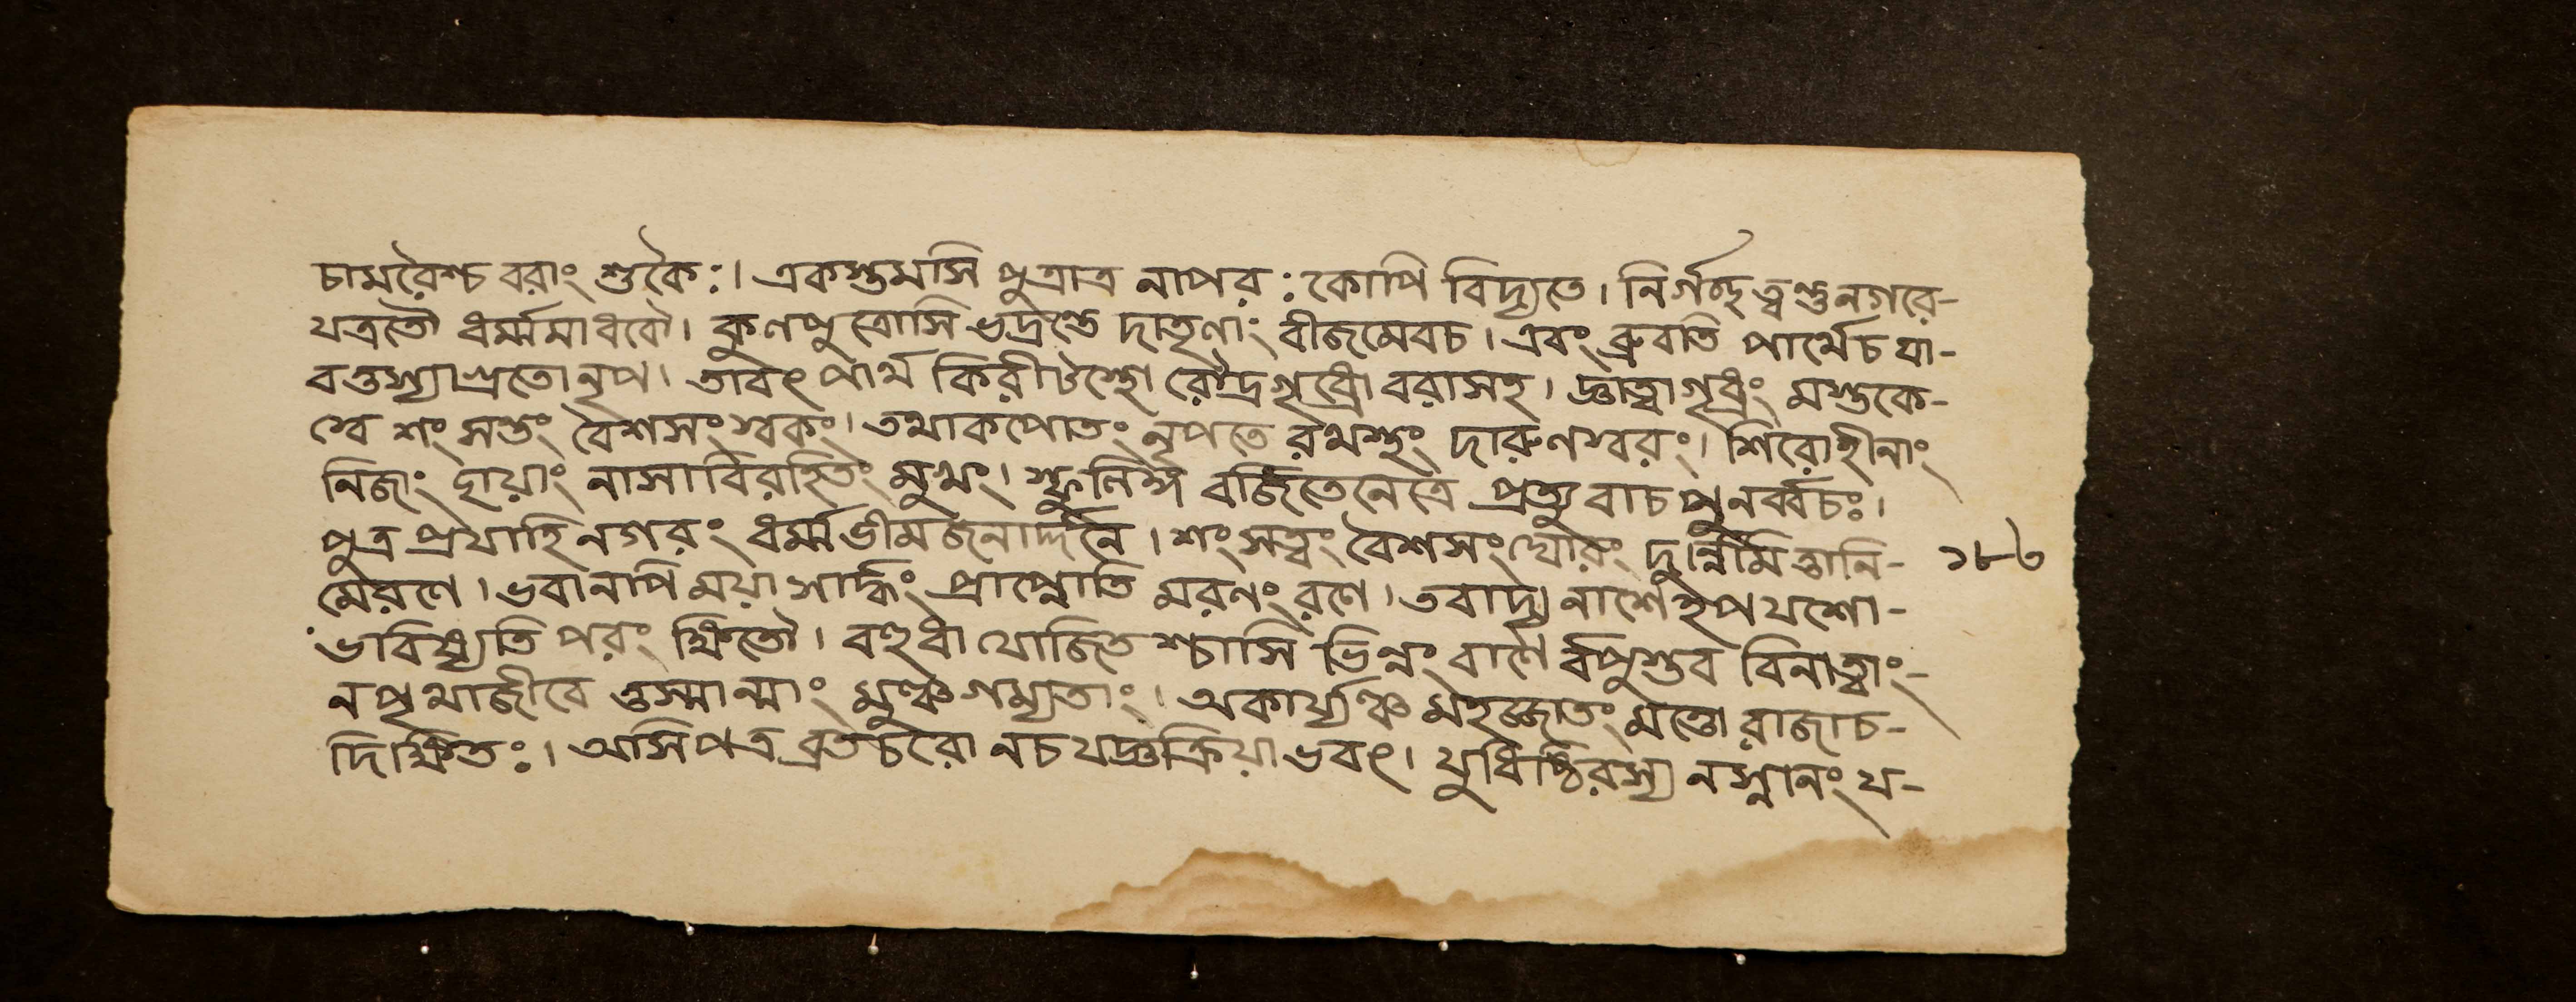 চামরৈশ্চ বরাং শুকৈঃ। একস্তমসি পুত্রাত্র নাপরঃ কোপি বিদ্যতে। নির্গচ্ছ ত্বণ্ডুনগরে-
যত্রতৌ ধর্ম্মমাধবৌ। কুণপুত্রোসি ভদ্রন্তে দাতৃণাং বীজমেবচ। এবং ব্রুবতি পার্থেচ যা-
বত্তস্যাগ্রতোনৃপ। তাবৎ পার্থ কিরীটস্থো রৌদ্রগৃধ্রো বরাসহ। জ্ঞাত্বাগৃধ্রং মস্তকে-
স্বে শং সন্তং বৈশসংস্বকং। তথাকপোতং নৃপতে রথস্থং দারুণস্বরং। শিরোহীনাং
নিজাং ছায়াং নাসাবিরহিতং মুখং। স্ফুলিঙ্গ বর্জিতেনেত্রে প্রত্যুবাচ পুনর্ব্বচঃ।
পুত্র প্রযাহি নগরং ধর্ম্মভীমজনার্দ্দনে। শং সত্বং বৈশসংঘোরং দুর্ন্নিমিত্তানি- ১৮৬
মেরণে। ভবানপি ময়া সার্দ্ধং প্রাপ্নোতি মরনং রণে। তবাদ্য নাশেহ্যপযশো-
ভাবিষ্যতি পরং ক্ষিতৌ। বহুধা যোজিত শ্চাসি ভিন্নং বাণৈর্বপুস্তব বিনাত্বাং-
নপৃথাজীবে ত্তস্মান্মাং মুঞ্চ গম্যতাং। অকার্য্যঞ্চ মহজ্জাতং মত্তো রাজাচ-
দিক্ষিতঃ। অসিপত্র ব্রতচরো নচ যজ্ঞক্রিয়া ভবৎ। যুধিষ্ঠিরস্য নস্নানং য-